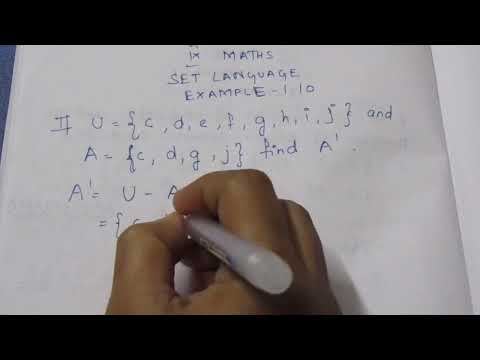 IX MATHS
SET LANGUAGE
EXAMPLE-1.10
If U = {c, d, e, f, g, h, i, j} and
A = {c, d, g, j} find A'.
A' = U - A
= {c,